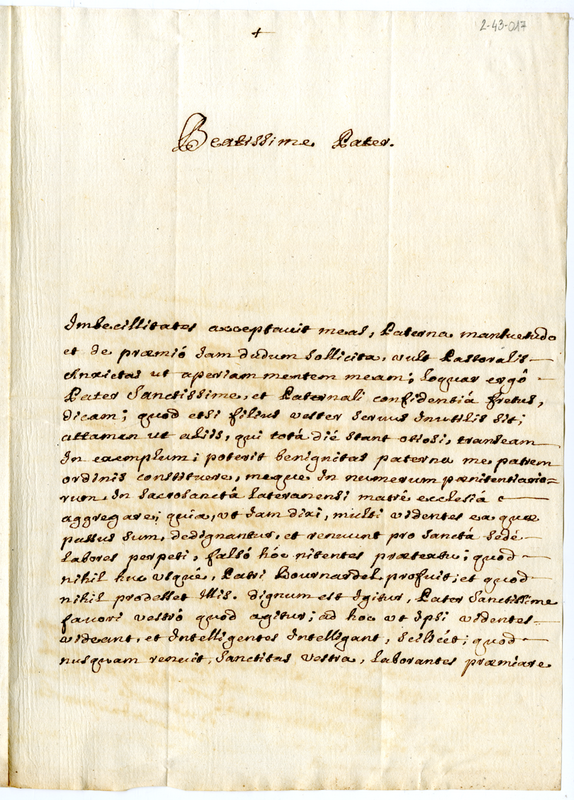 2-43-017
+
Beatissime Pater.
Imbecillitates acceptavit meas, Paterna mansuetudo
et de præmió Jam dudum sollicita, vult Pastoralis
Anxietas ut aperiam mentem meam; loquar ergô
Pater Sanctissime, et Paternali confidentiá fretus,
dicam; quod etsi filius vester servus Inutilis sit;
attamen ut aliis, qui totá dié stant otiosi, transeam
In exemplum; poterit benignitas paterna me patrem
ordinis constituere, meque In numerum pænitentiario=
rum In Sacrosanctá Lateranensi matré ecclesiá
aggregare; quia, ut Jam dixi, multi videntes ea quæ
passus sum, dedignantur, et renuunt pro Sanctá Sedé
labores perpeti, falsó hóc nitentes prætextu; quod
nihil huc usquè, Patri Bournardel profuit; et quod
nihil prodesset Illis. dignum est Igitur, Pater Sanctissime
favori vestró quod agitur; ad hoc ut Ipsi videntes
videant, et Intelligentes Intelligant, Scilicét; quod
nusquam renuit, Sanctitas vestra, laborantes præmiare